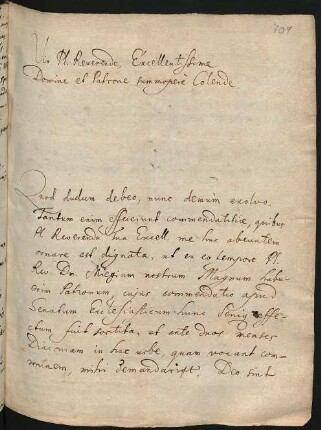 707
Vir Pl. Reverende, Excellentissime
Domine et Patrone summopere Colende
Quod dudum debeo, nunc demum exolvo.
Tantum enim effeciunt commendatitiæ, quibus
Pl. Reverenda tua Excell. me huc abeuntem
ornare est dignata, ut ex eo tempore Pl.
Rev. Dn. nostrum Magnum habu-
erim Patronum, cujus commendatio apud
Senatum Ecclesiasticum hunc effe-
ctum fuit sortita, ut ante duos menses
Diaconiam in hac urbe, quam vocant com-
mihi demandarint. Deo sint